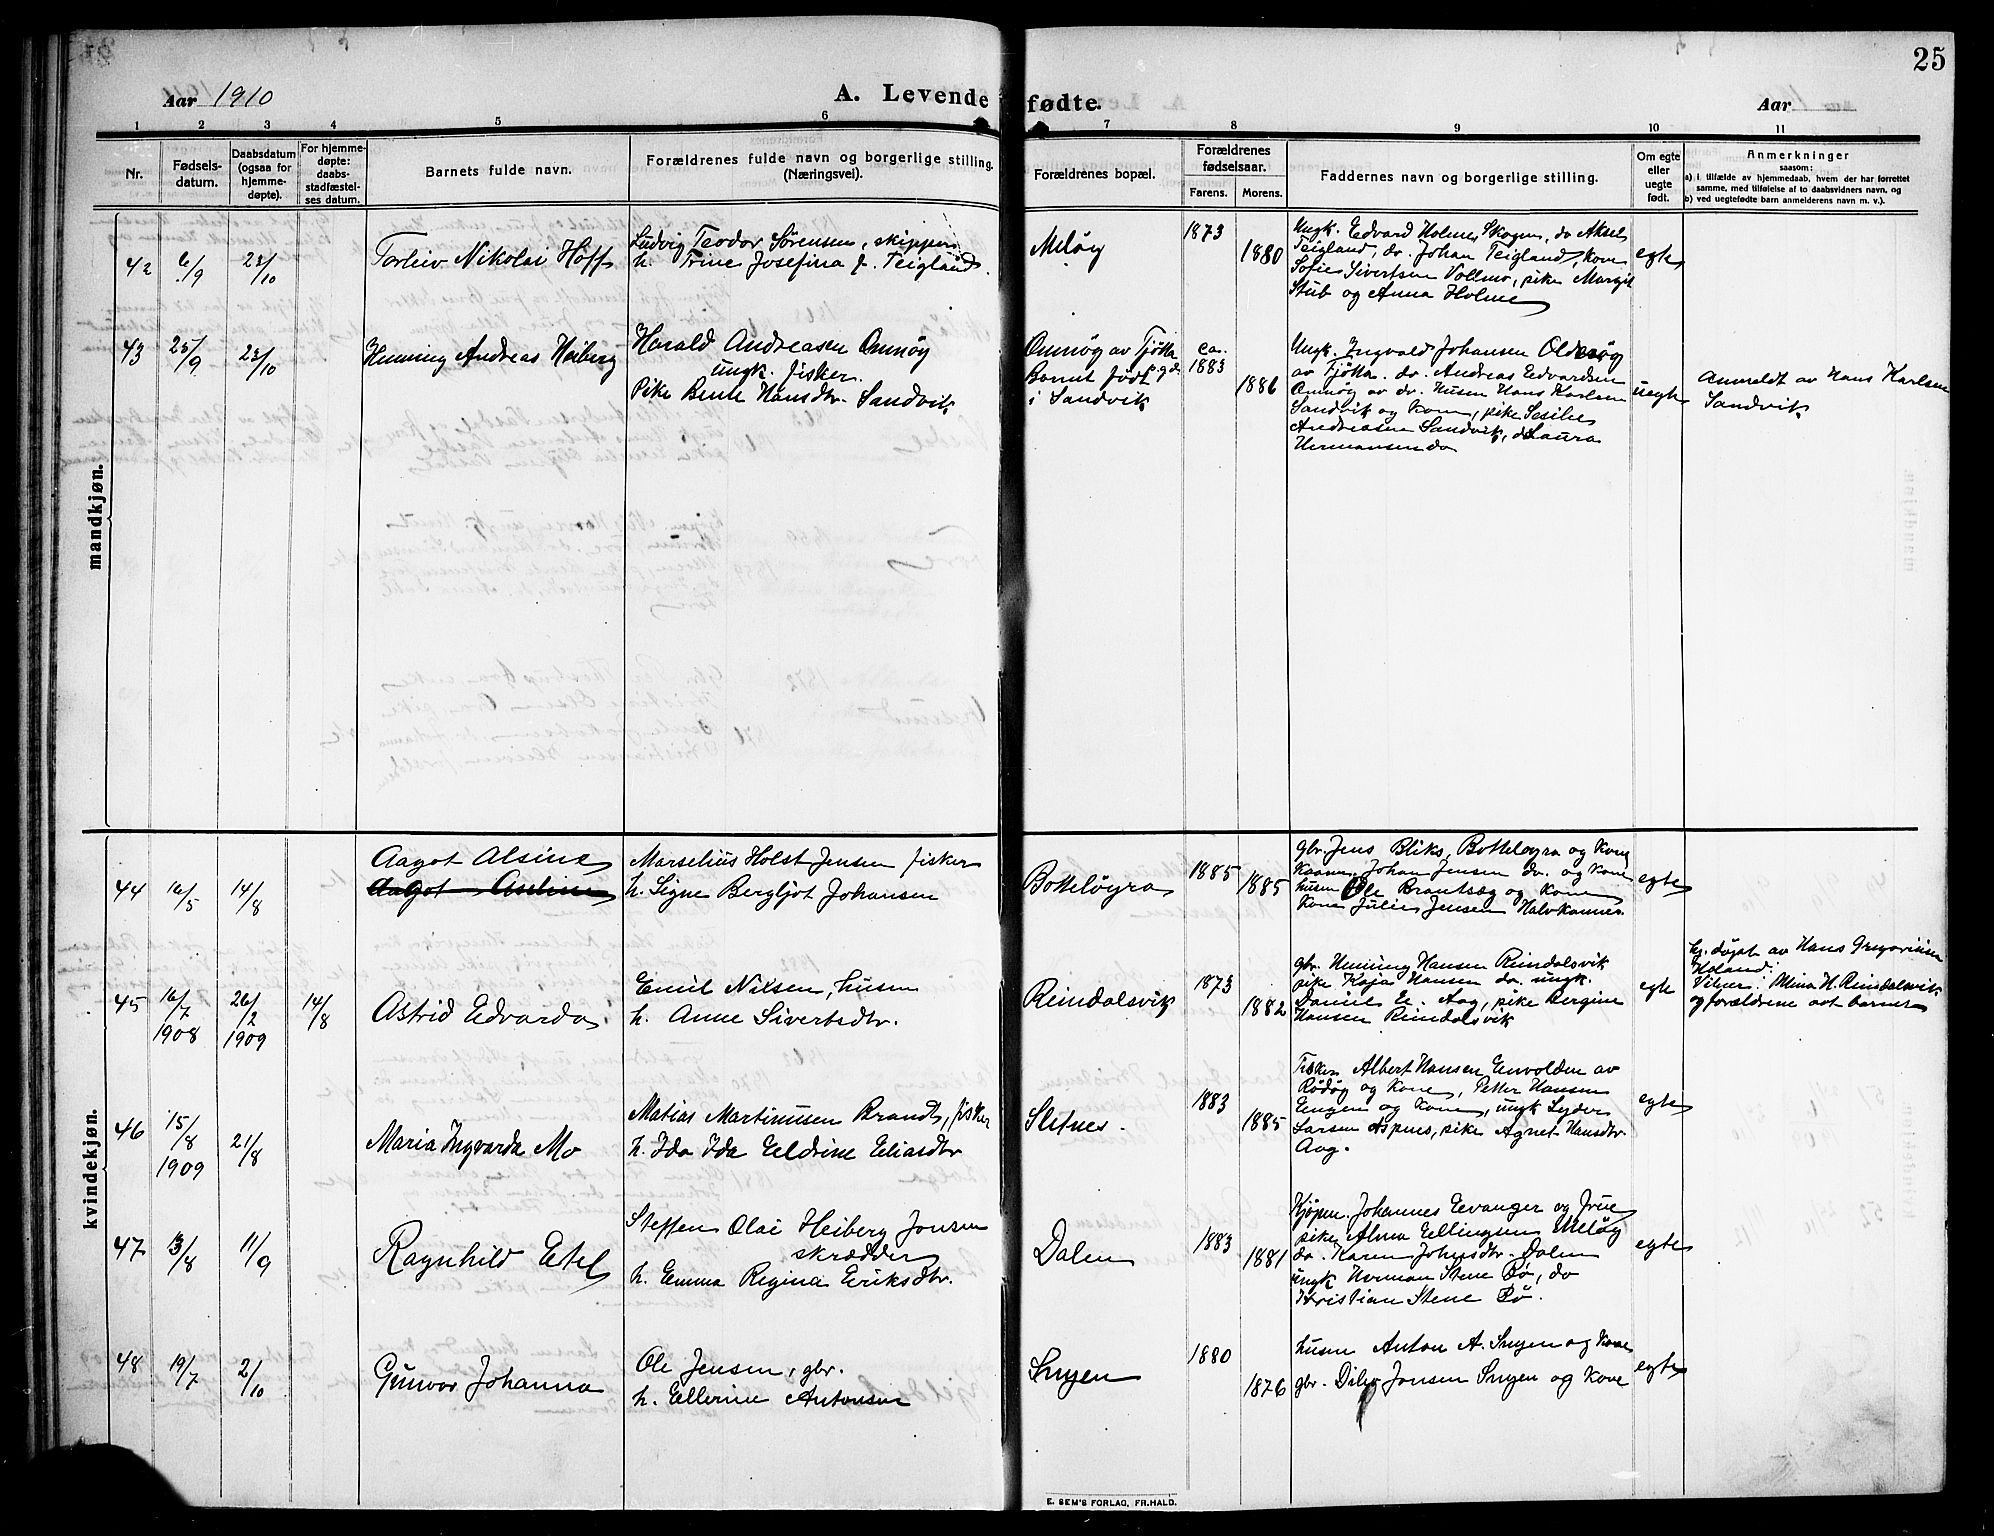 25
Aar 1910
A. Levende fødte.
Aar
1 2 3 4 5 6 7 8 9 10 11
Nr.
Fødsels-
datum.
Daabsdatum
(ogsaa for
hjemme-
døpte).
For hjemme-
døpte:
daabs-
stadfæstel-
ses datum.
Barnets fulde navn.
Forældrenes fulde navn og borgerlige stilling.
(Næringsvei).
Forældrenes bopæl.
Forældrenes
fødselsaar.
Farens.
Morens.
Faddernes navn og borgerlige stilling.
Om egte
eller
uegte
født.
Anmerkninger
saasom:
a) i tilfælde av hjemmedaab, hvem der har forrettet
samme, med tilføielse af to daabsvidners navn, og
b) ved uegtefødte barn anmelderens navn m. v.).
mandkjøn.
42
6/9
23/10
Torleiv Nikolai Hoff
Ludvig Teodor Sørensen, skipper
h. Trine Josefina f. Teigland.
Meløy
1873
1880
Ungk. Edvard Holmes Skogen, do Aksel
Teigland, do. Johan Teigland, kone
Sofie Sivertsen Vollmo, pike Margit
Stub og Anna Holme
egte
43
25/9
23/10
Henning Andreas Heiberg
Harald Andreasen Omnøy
ungk. fisker.
Pike Bente Hansdtr. Sandvik
Omnøy av Tjøtta
pgd.
Barnet født
i Sandvik
ca.
1883
1886
Ungk. Ingvald Johansen Oldersøy
av Tjøtta. do. Andreas Edvardsen
Omnøy av do. husm Hans Karlsen
Sandvik og Kone, pike Sesilie
Andreasen Sandvik, do Laura
Hermansen do
uegte
Anmeldt av Hans Karlsen
Sandvik
kvindekjøn.
44
16/5
14/8
Aagot Alsine
Aagot Aseline
Marselius Holst Jensen fisker
h. Signe Bergljot Johansen
Botteløyra
1885
1885
gbr Jens Bliks, Botteløyra og Kone
Johan Jensen do. og Kone
husm Ole Brantsæg og Kone
Kone Julie Jensen Halvkannes.
egte
45
16/7
1908
26/2
1909
14/8
Astrid Edvarda.
Emil Nilsen, husm
h. Anne Sivertsdtr.
Reindalsvik
1873
1882
gbr. Henning Hansen Reindalsvik
pike Kaja Hansen do. ungk.
Daniel E. Aag, pike Bergine
Hansen Reindalsvik
egte
hj. døpt av Hans Gregoriusen
Holand.
Vitner: Mina H. Reindalsvik
og forældrene aot barnet
46
15/8
1909
21/8
Maria Ingvarda Mo
Matias Martinusen Brandt, fisker
h. Ida Ida Eldrine Eliasdtr
Sletnes.
1883
1885
Fisker Albert Hansen Envolden av
Rødøy og Kone, Petter Hansen
Engen og Kone, ungk Lyder
Larsen Aspnes, pike Agnet Hansdtr.
Aag.
egte
47
13/8
11/9
Ragnhild Etel
Steffen Olai Heiberg Jonsen
skrædder
h. Emma Regina Eriksdtr.
Dalen
1883
1881
Kjøpm. Johannes Evanger og frue
pike Alma Ellingsen Meløy
do. Karen Johnsdtr. Dalen
ungk Herman Stene Bø, do
Kristian Stene Bø.
egte
48
19/7
2/10
Gunvor Johanna
Ole Jensen, gbr.
h. Ellerine Antonsen
Snyen
1880
1876
husm Anton A. Snyen og Kone
gbr. Jonsen Snyen og Kone
egte
E. SEM'S FORLAG, FR.HALD.